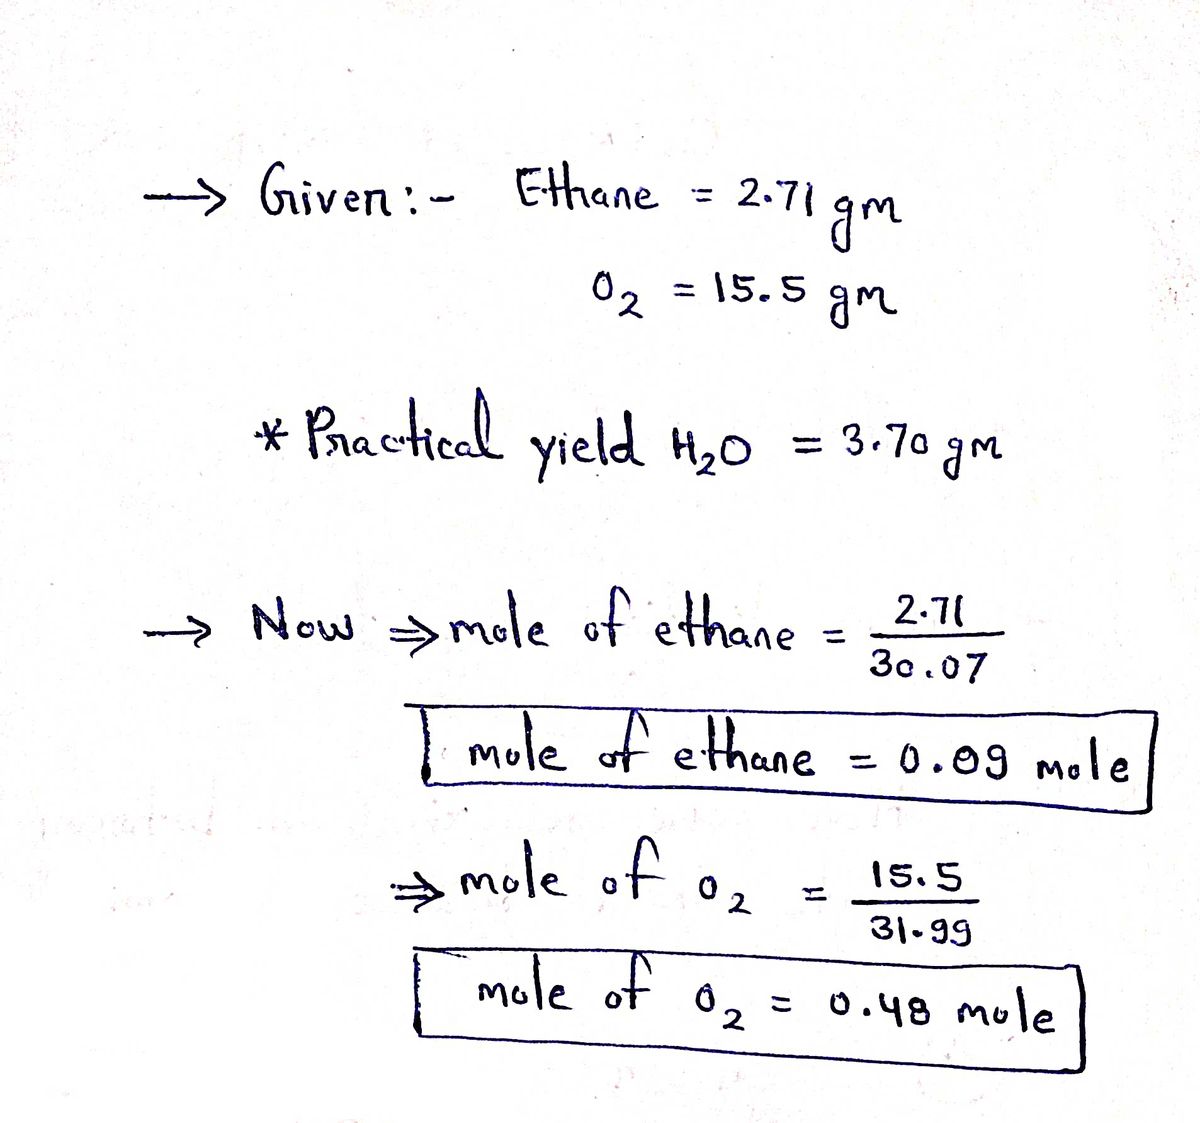 → Given :- Ethane = 2.71 gm
O₂ = 15.5 gm
* Practical yield H₂O = 3.70 gm
→ Now ⇒ mole of ethane = 2.71 / 30.07
mole of ethane = 0.09 mole
⇒ mole of O₂ = 15.5 / 31.99
mole of O₂ = 0.48 mole